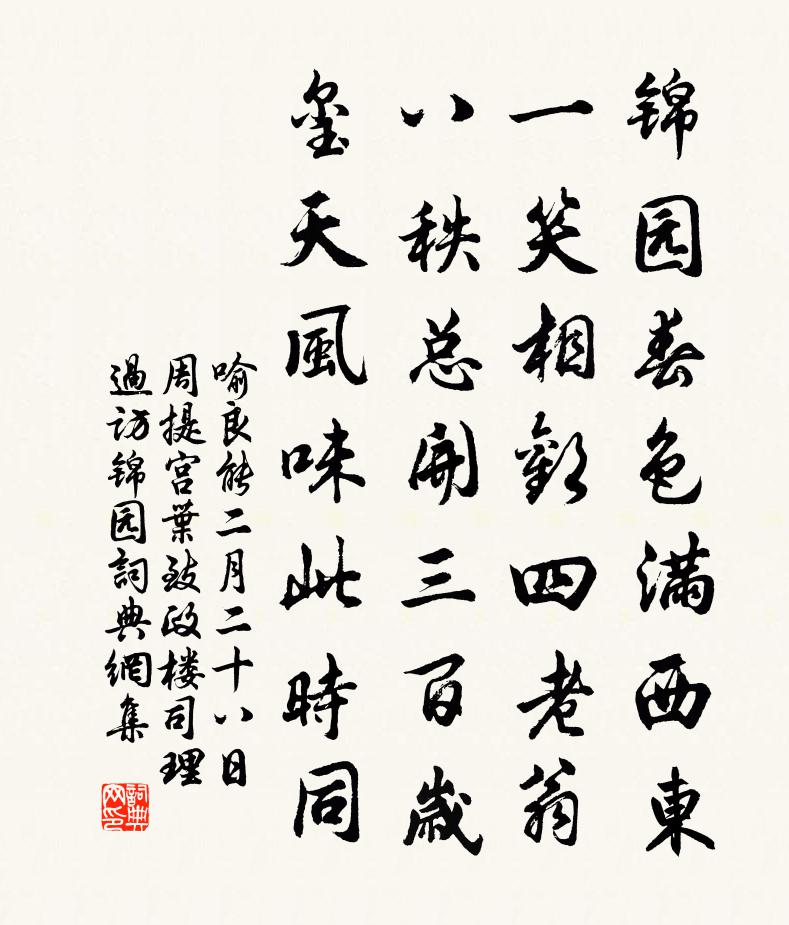 锦园春色满西東
一笑相歡四老翁
八秩总開三百歲
壐天風味此時同
喻良能二月二十八日
周提宫葉致政楼司理
過访锦园詞典網集
詞典网印